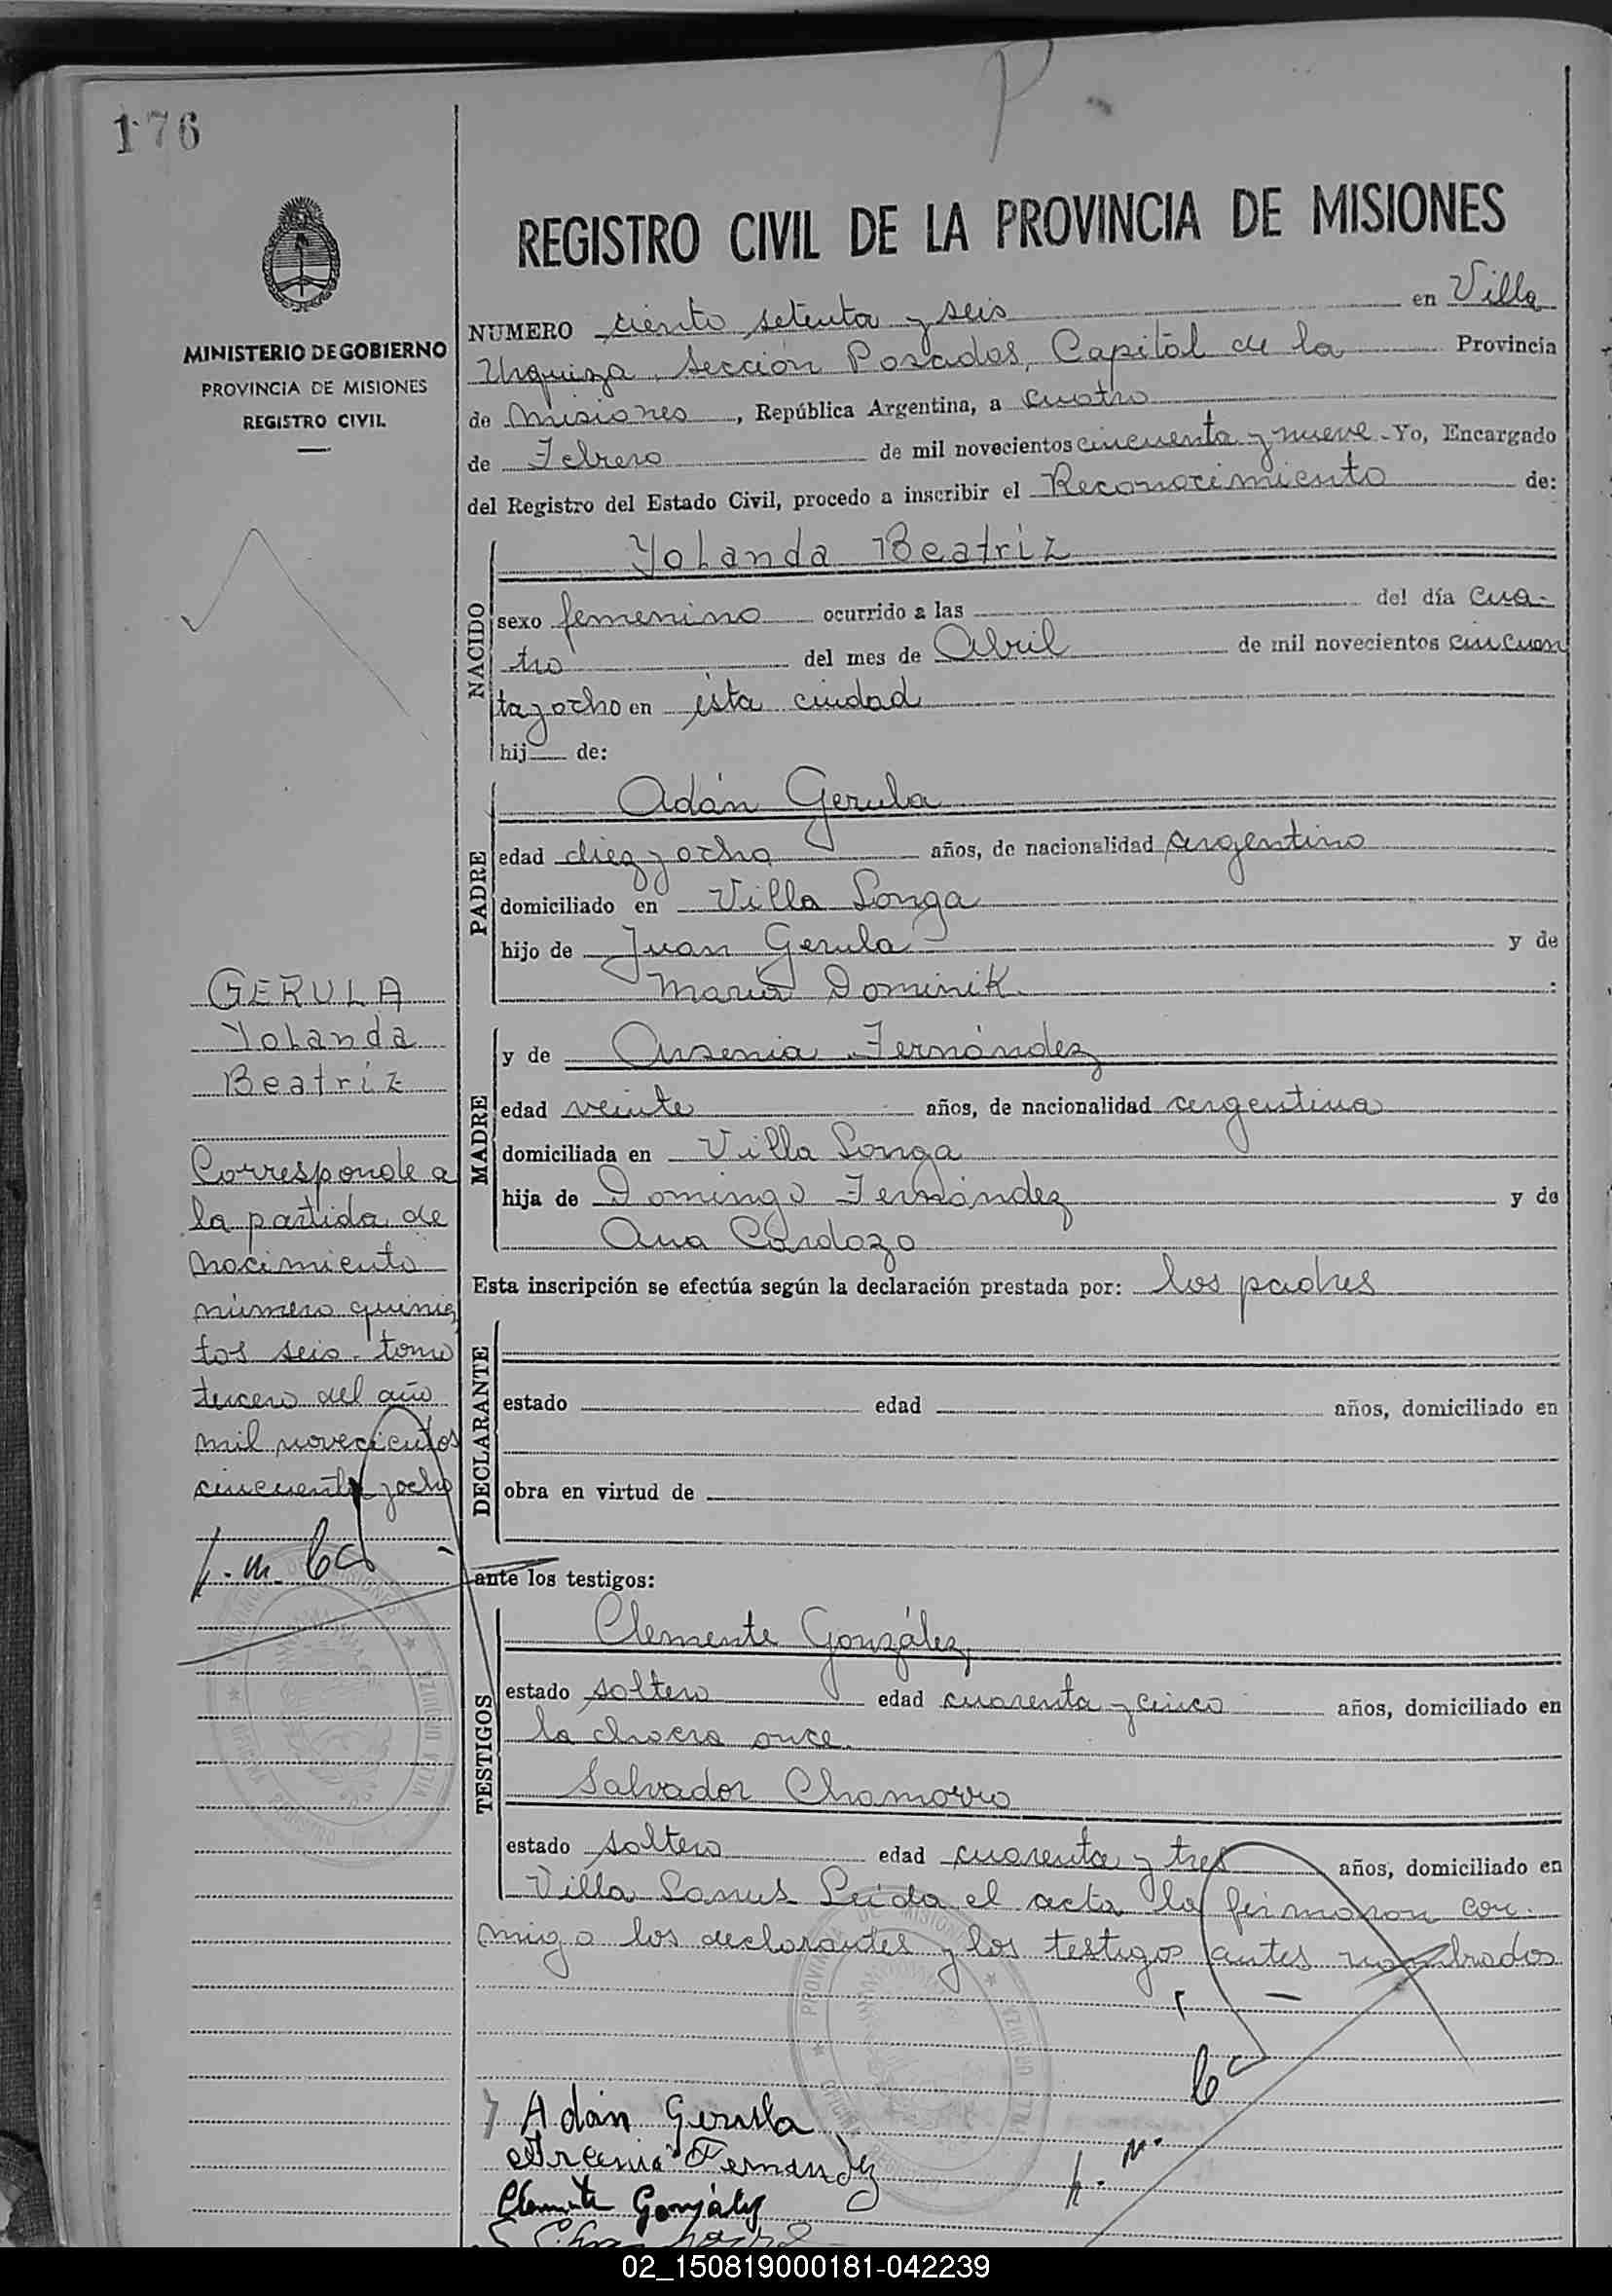 P
176
REGISTRO CIVIL DE LA PROVINCIA DE MISIONES
MINISTERIO DE GOBIERNO
PROVINCIA DE MISIONES
REGISTRO CIVIL
NUMERO ciento setenta y seis en Villa
Urquiza, Sección Posadas, Capital de la Provincia
de Misiones, República Argentina, a cuatro
de Febrero de mil novecientos cincuenta y nueve - Yo, Encargado
del Registro del Estado Civil, procedo a inscribir el Reconocimiento de:
NACIDO
Yolanda Beatriz
sexo femenino ocurrido a las del día cua-
tro del mes de Abril de mil novecientos cincuen
ta y ocho en ésta ciudad
hij de:
PADRE
Adán Gerula
edad diez y ocho años, de nacionalidad argentino
domiciliado en Villa Longa
hijo de Juan Gerula y de
María Dominik :
MADRE
y de Arsenia Fernández
edad veinte años, de nacionalidad argentina
domiciliada en Villa Longa
hija de Domingo Fernández y de
Ana Cardozo
Esta inscripción se efectúa según la declaración prestada por: los padres
DECLARANTE
estado edad años, domiciliado en
obra en virtud de
ante los testigos:
TESTIGOS
Clemente González
estado soltero edad cuarenta y cinco años, domiciliado en
la chacra once.
Salvador Chamorro
estado soltero edad cuarenta y tres años, domiciliado en
Villa Lanus Leída el acta la firmaron con-
migo los declarantes y los testigos antes nombrados
Adán Gerula
Arcenia Fernandez
Clemente González
GERULA
Yolanda
Beatriz
Corresponde a
la partida de
nacimiento
número quinien
tos seis - tomo
tercero del año
mil novecientos
cincuenta y ocho
02_150819000181-042239